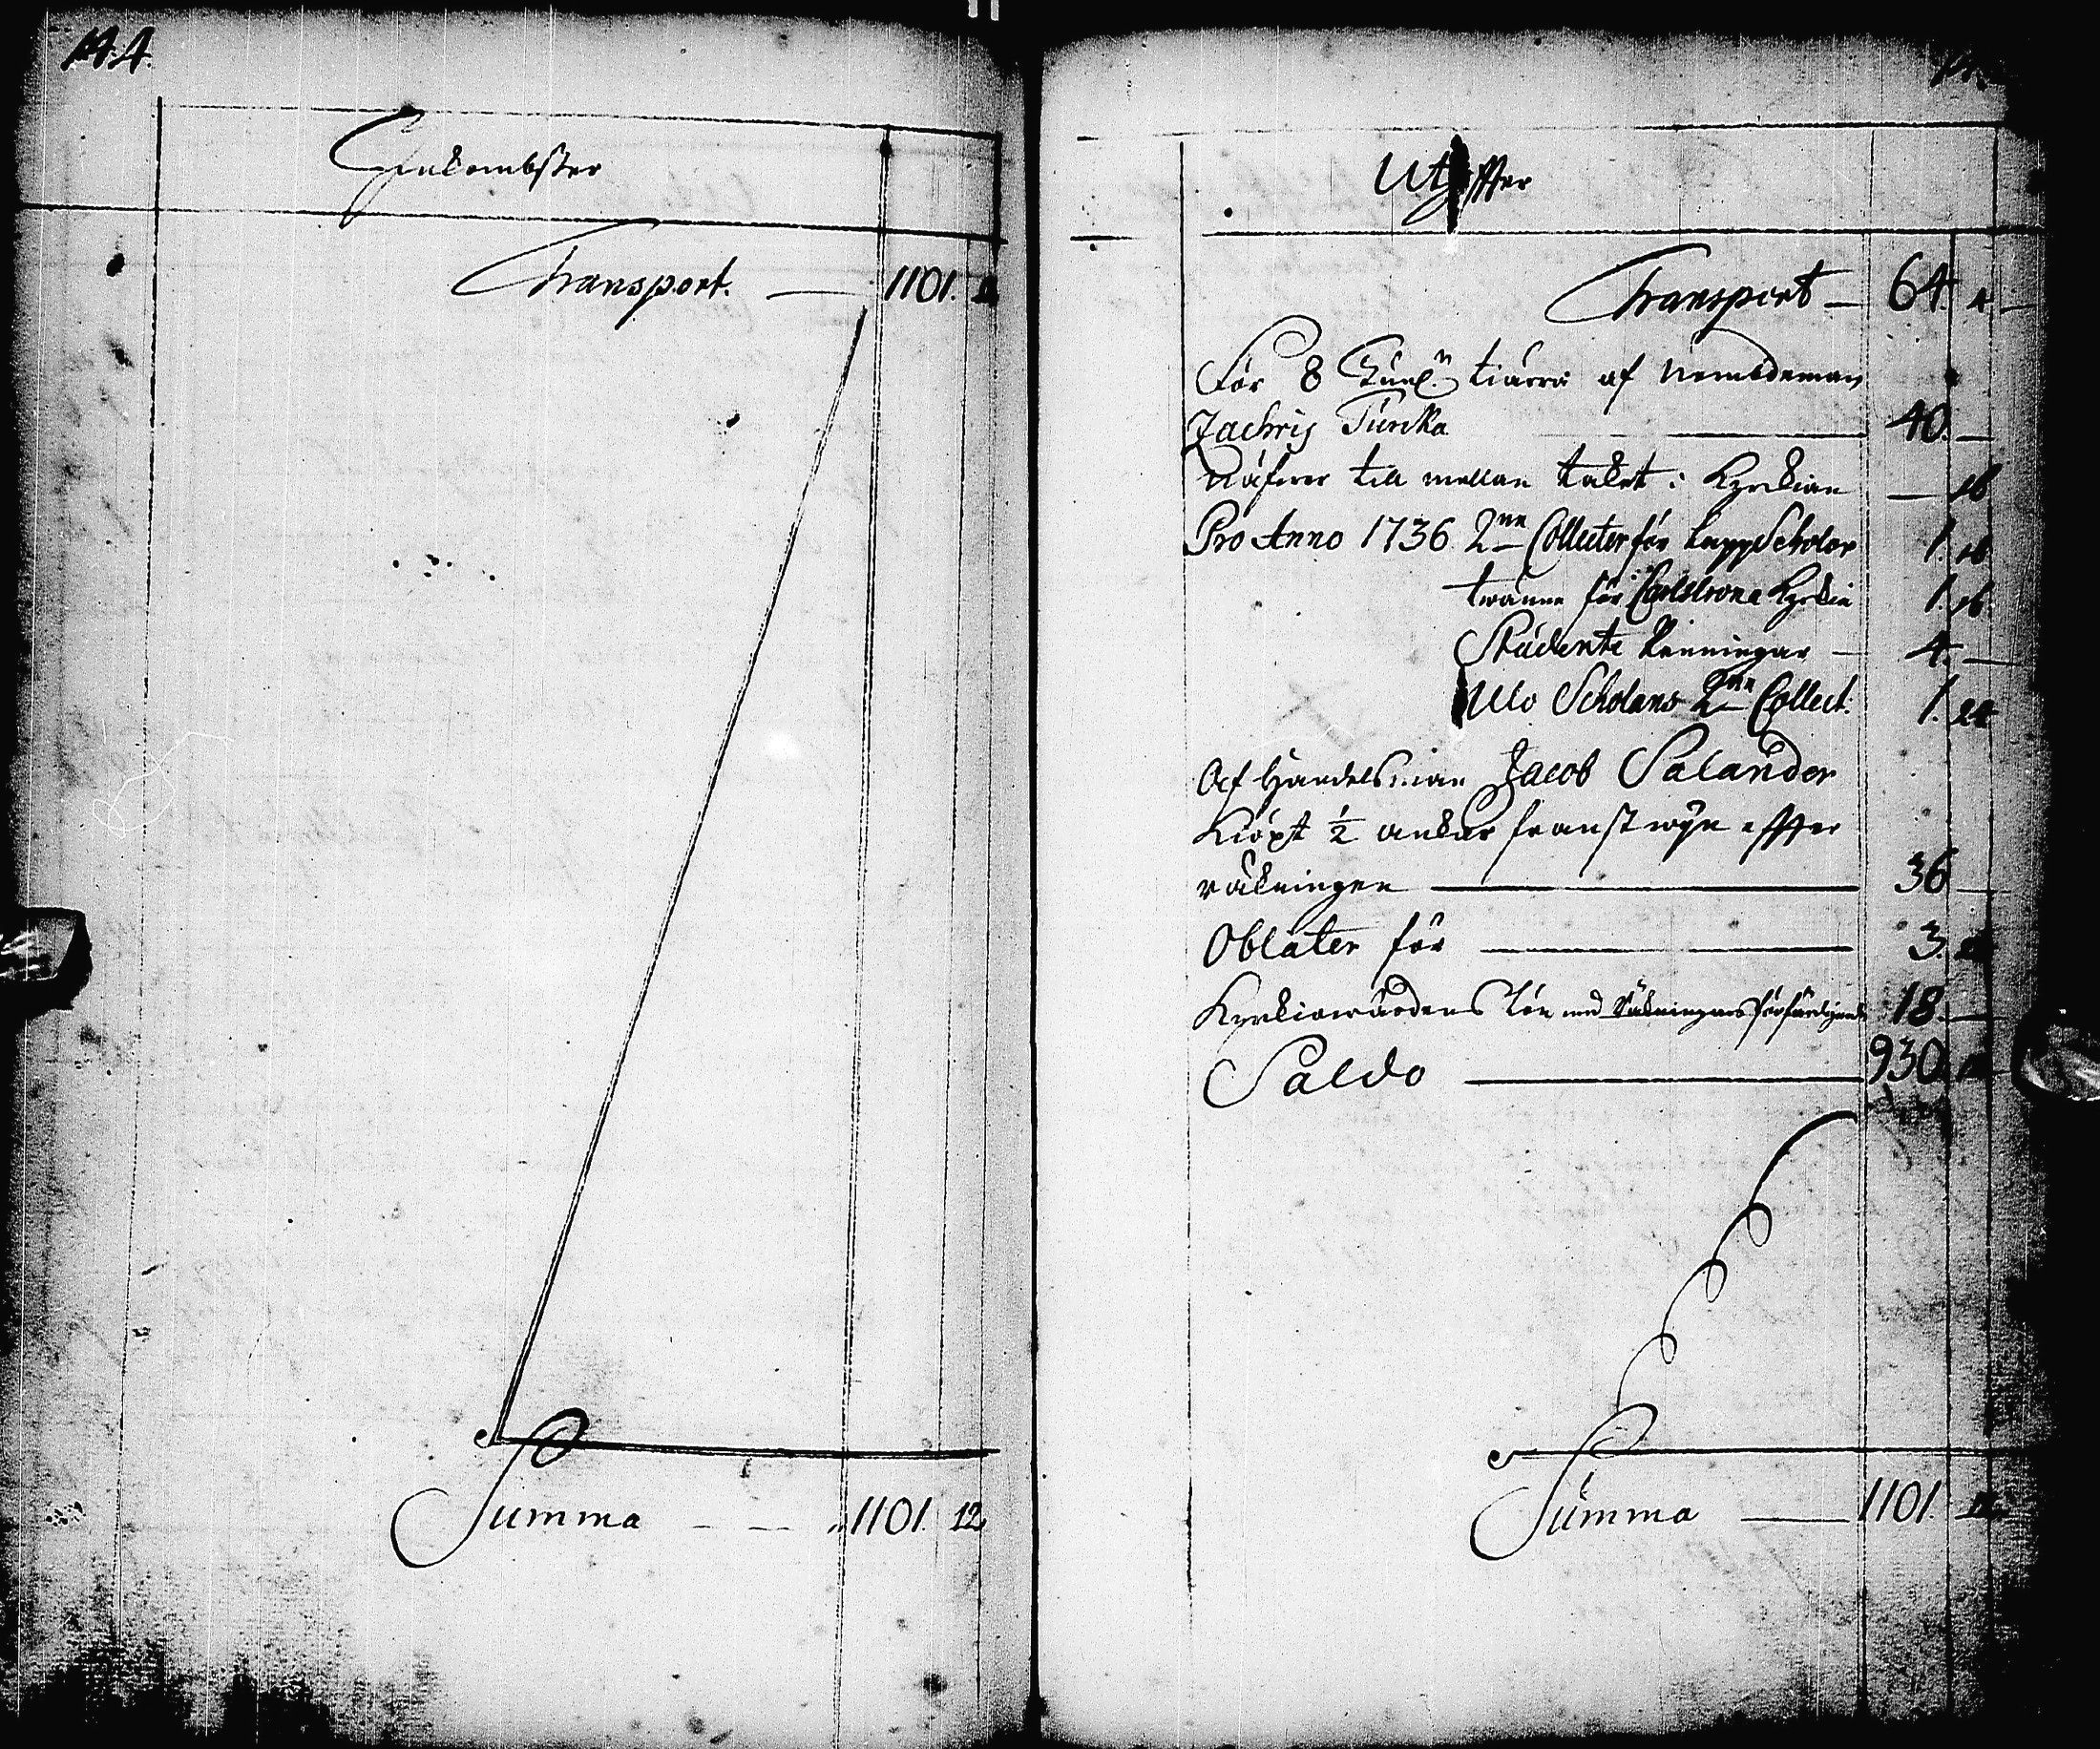 144.
Inkombster
Transport. 1101. 12
Summa 1101. 12
Utgiffter
Transport 64. 4.
För 8 Tunn:r tiäro af Nembdeman
Zachris Turcka 40.
Näfwer till mellan taket i Kyrkian 16
Pro Anno 1736 2ne Collecter för LappScholar 1. 16
twänne för Carlskrona Kyrkia 1. 16.
Studente Penningar 4.
Ulo Scholans 2ne Collect: 1. 24
Af Handelsman Jacob Salander
Kiöpt 1/2 ankar franst wijn effter
räkningen 36
Oblater för 3.
Kyrkiowärdens lön med Räkningars förfärdigande 18.
Saldo 930.
Summa 1101. 12